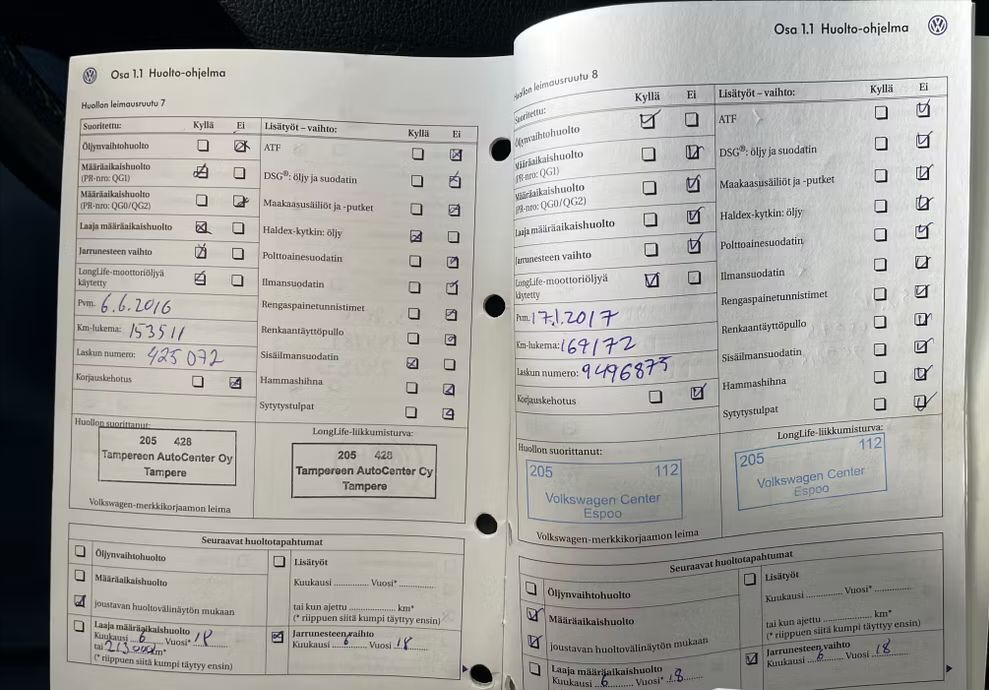 Osa 1.1 Huolto-ohjelma
Huollon leimausruutu 7
Suoritettu: Kyllä Ei
Öljynvaihtohuolto
Määräaikaishuolto
(PR-nro: QG1)
Määräaikaishuolto
(PR-nro: QG0/QG2)
Laaja määräaikaishuolto
Jarrunesteen vaihto
LongLife-moottoriöljyä
käytetty
Pvm. 6.6.2016
Km-lukema: 153511
Laskun numero: 425 072
Korjauskehotus
Lisätyöt – vaihto: Kyllä Ei
ATF
DSG®: öljy ja suodatin
Maakaasusäiliöt ja -putket
Haldex-kytkin: öljy
Polttoainesuodatin
Ilmansuodatin
Rengaspainetunnistimet
Renkaantäyttöpullo
Sisäilmansuodatin
Hammashihna
Sytytystulpat
Huollon suorittanut:
205 428
Tampereen AutoCenter Oy
Tampere
Volkswagen-merkkikorjaamon leima
LongLife-liikkumisturva:
205 428
Tampereen AutoCenter Oy
Tampere
Seuraavat huoltotapahtumat
Öljynvaihtohuolto
Määräaikaishuolto
joustavan huoltovälinäytön mukaan
Laaja määräaikaishuolto
Kuukausi 6 Vuosi* 18
tai 213000 km*
(* riippuen siitä kumpi täytyy ensin)
Lisätyöt
Kuukausi ............ Vuosi* ............
tai kun ajettu ............ km*
(* riippuen siitä kumpi täyttyy ensin)
Jarrunesteen vaihto
Kuukausi 6 Vuosi 18
Osa 1.1 Huolto-ohjelma
Huollon leimausruutu 8
Suoritettu: Kyllä Ei
Öljynvaihtohuolto
Määräaikaishuolto
(PR-nro: QG1)
Määräaikaishuolto
(PR-nro: QG0/QG2)
Laaja määräaikaishuolto
Jarrunesteen vaihto
LongLife-moottoriöljyä
käytetty
Pvm. 17.1.2017
Km-lukema: 169172
Laskun numero: 9496875
Korjauskehotus
Lisätyöt – vaihto: Kyllä Ei
ATF
DSG®: öljy ja suodatin
Maakaasusäiliöt ja -putket
Haldex-kytkin: öljy
Polttoainesuodatin
Ilmansuodatin
Rengaspainetunnistimet
Renkaantäyttöpullo
Sisäilmansuodatin
Hammashihna
Sytytystulpat
Huollon suorittanut:
205 112
Volkswagen Center
Espoo
Volkswagen-merkkikorjaamon leima
LongLife-liikkumisturva:
205 112
Volkswagen Center
Espoo
Seuraavat huoltotapahtumat
Öljynvaihtohuolto
Määräaikaishuolto
joustavan huoltovälinäytön mukaan
Laaja määräaikaishuolto
Kuukausi 6 Vuosi* 18
Lisätyöt
Kuukausi ............ Vuosi* ............
tai kun ajettu ............ km*
(* riippuen siitä kumpi täyttyy ensin)
Jarrunesteen vaihto
Kuukausi 6 Vuosi 18